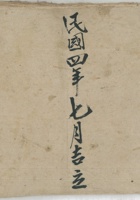 民國四年七月吉立